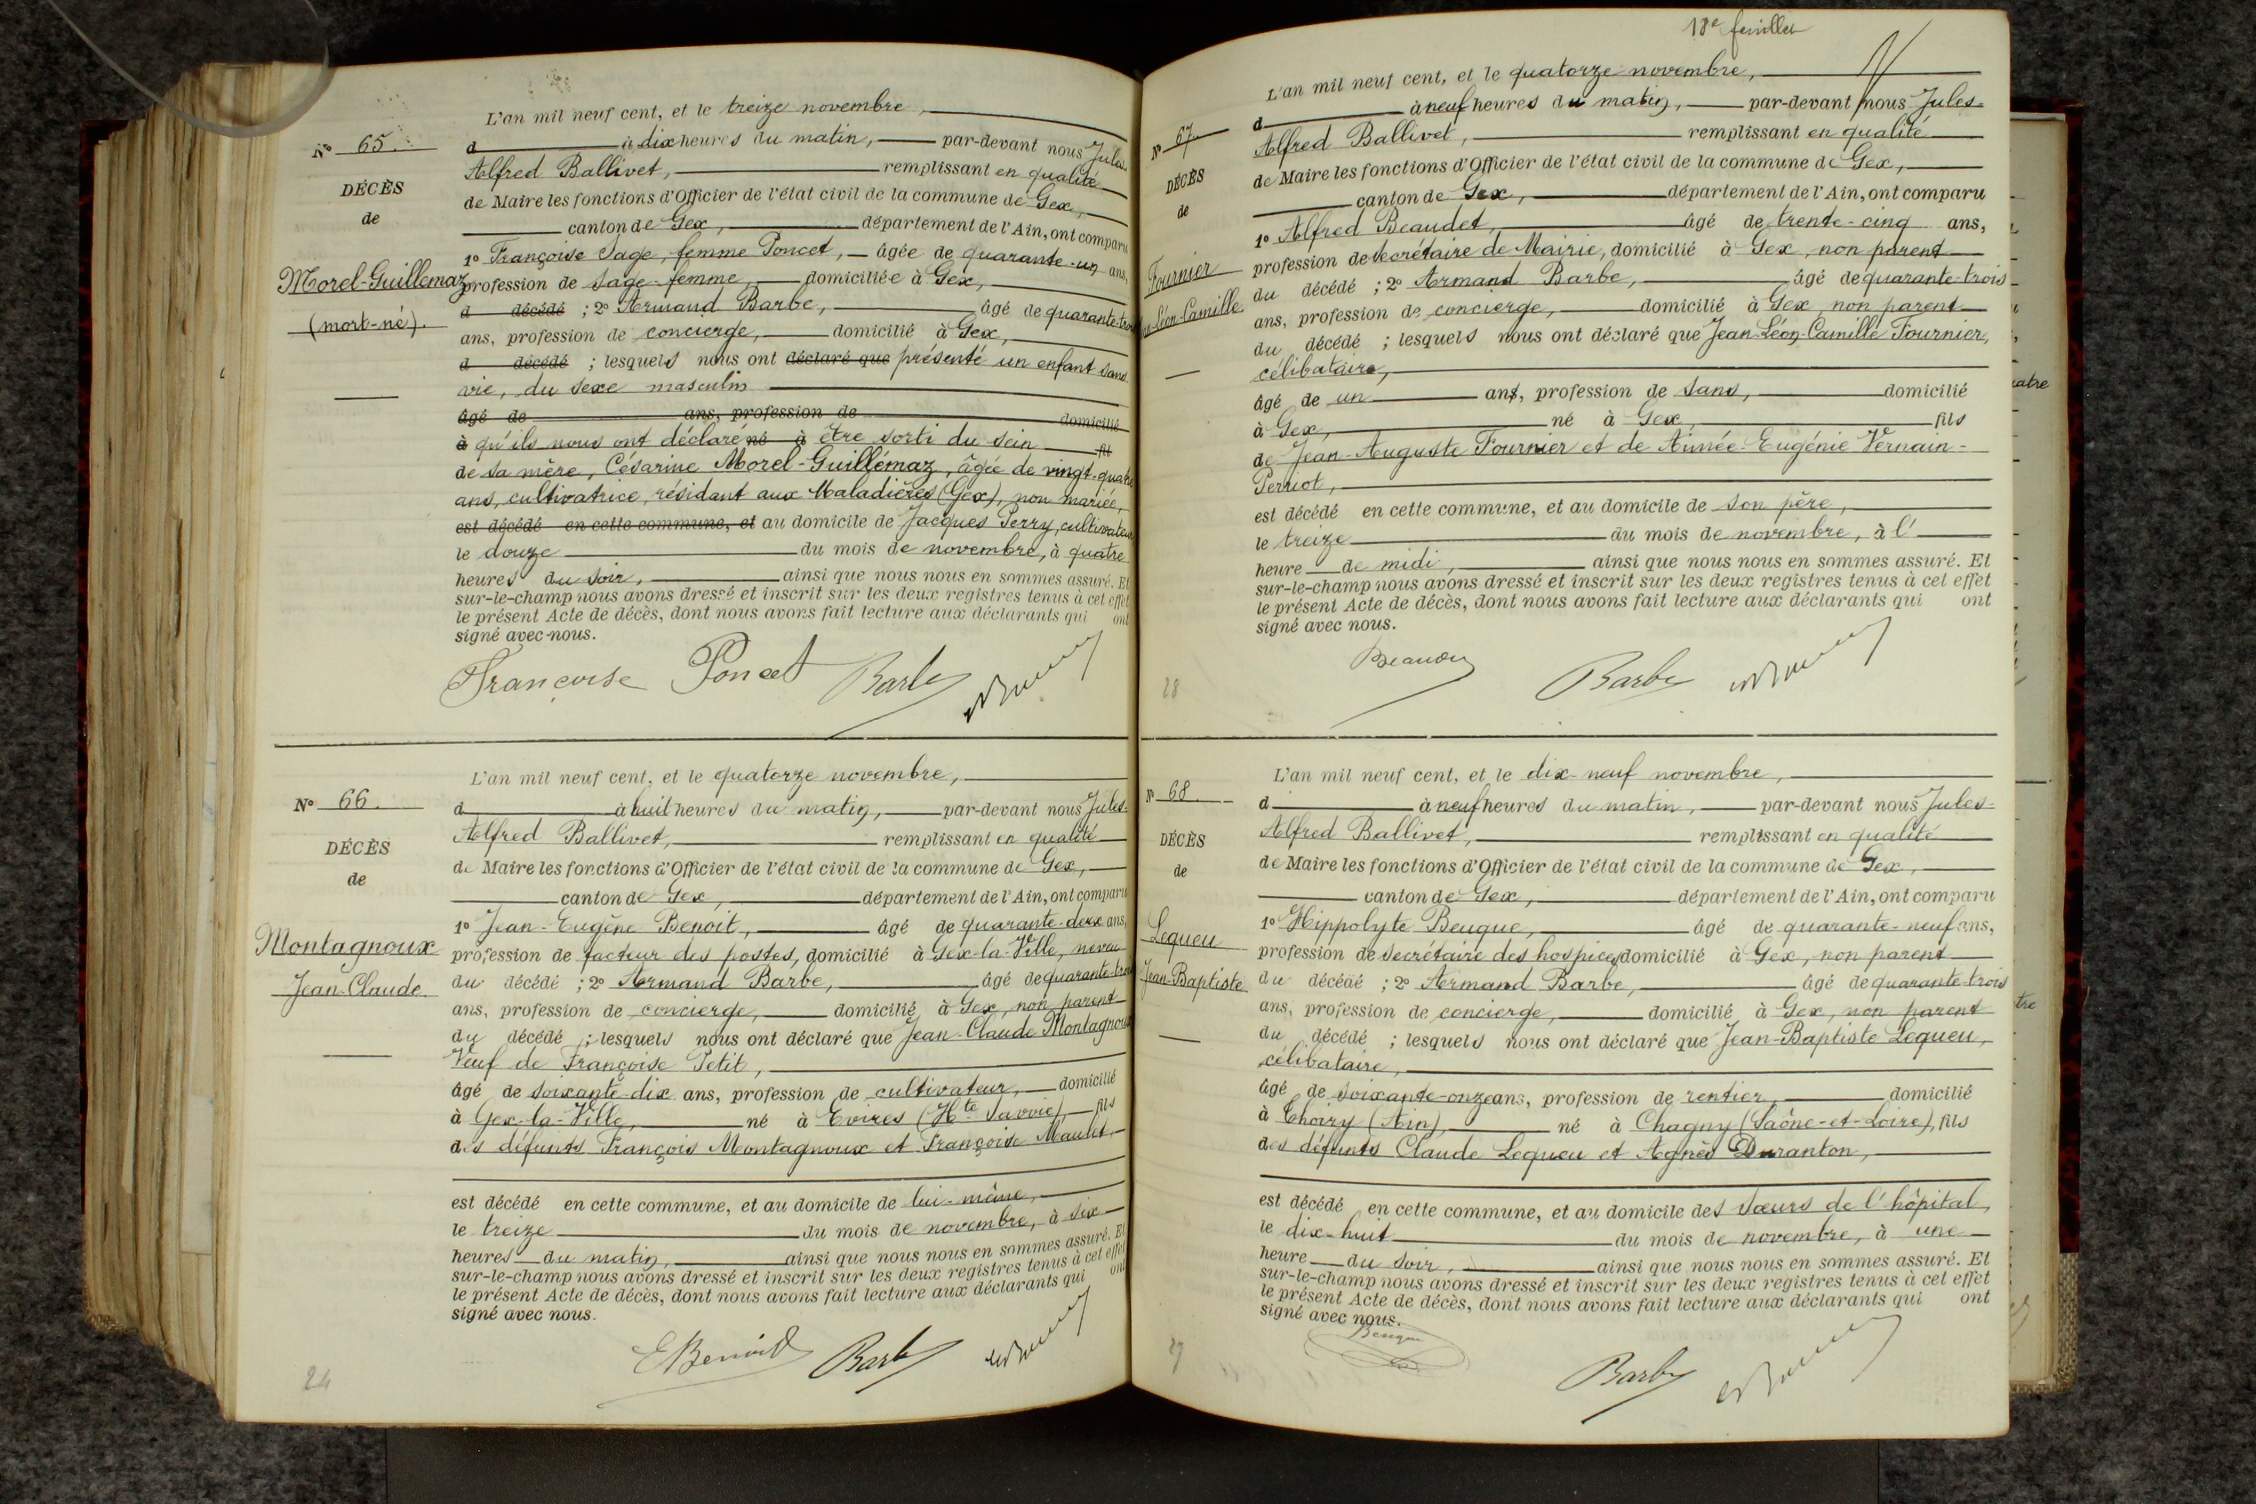 N° 65.
DÉCÈS
de
Morel-Guillemaz
(mort-né).
L'an mil neuf cent, et le treize novembre
d à dix heures du matin, par-devant nous Jules-
Alfred Ballivet, remplissant en qualité
de Maire les fonctions d'Officier de l'état civil de la commune de Gex,
canton de Gex, département de l'Ain, ont comparu
1° Françoise Sage, femme Poncet, âgée de quarante-un ans,
profession de sage-femme, domiciliée à Gex,
d décédé ; 2° Armand Barbe, âgé de quarante-trois
ans, profession de concierge, domicilié à Gex,
d décédé ; lesquels nous ont déclaré que présenté un enfant sans
vie, du sexe masculin
âgé de ans, profession de domicilié
à qu'ils nous ont déclaré né à être sorti du sein fil
de sa mère, Césarine Morel-Guillémaz, âgée de vingt-quatre
ans, cultivatrice, résidant aux Maladières (Gex), non mariée,
est décédé en cette commune, et au domicile de Jacques Perry, cultivateur
le douze du mois de novembre, à quatre
heures du soir, ainsi que nous nous en sommes assuré. Et
sur-le-champ nous avons dressé et inscrit sur les deux registres tenus à cet effet
le présent Acte de décès, dont nous avons fait lecture aux déclarants qui ont
signé avec nous.
Françoise Poncet Barbe
N° 66.
DÉCÈS
de
Montagnoux
Jean-Claude.
L'an mil neuf cent, et le quatorze novembre,
d à huit heures du matin, par-devant nous Jules-
Alfred Ballivet, remplissant en qualité
de Maire les fonctions d'Officier de l'état civil de la commune de Gex,
canton de Gex, département de l'Ain, ont comparu
1° Jean-Eugène Benoit, âgé de quarante-deux ans,
profession de facteur des postes, domicilié à Gex-la-Ville, neveu
du décédé ; 2° Armand Barbe, âgé de quarante-trois
ans, profession de concierge, domicilié à Gex, non parent
du décédé ; lesquels nous ont déclaré que Jean-Claude Montagnoux
Veuf de Françoise Petit,
âgé de soixante-dix ans, profession de cultivateur, domicilié
à Gex-la-Ville, né à Evires (Hte Savoie), fils
des défunts François Montagnoux et Françoise Maulet,
est décédé en cette commune, et au domicile de lui-même,
le treize du mois de novembre, à six
heures du matin, ainsi que nous nous en sommes assuré. Et
sur-le-champ nous avons dressé et inscrit sur les deux registres tenus à cet effet
le présent Acte de décès, dont nous avons fait lecture aux déclarants qui ont
signé avec nous.
E Benoit Barbe
18e feuillet
N° 67
DÉCÈS
de
Fournier
Léon-Camille
L'an mil neuf cent, et le quatorze novembre,
d à neuf heures du matin, par-devant nous Jules-
Alfred Ballivet, remplissant en qualité
de Maire les fonctions d'Officier de l'état civil de la commune de Gex,
canton de Gex, département de l'Ain, ont comparu
1° Alfred Beaudet, âgé de trente-cinq ans,
profession de secrétaire de Mairie, domicilié à Gex, non parent
du décédé ; 2° Armand Barbe, âgé de quarante-trois
ans, profession de concierge, domicilié à Gex, non parent
du décédé ; lesquels nous ont déclaré que Jean-Léon-Camille Fournier,
célibataire,
âgé de un ans, profession de sans, domicilié
à Gex, né à Gex, fils
de Jean-Auguste Fournier et de Aimée-Eugénie Vernain-
Perriot,
est décédé en cette commune, et au domicile de son père,
le treize du mois de novembre, à l'
heure de midi, ainsi que nous nous en sommes assuré. Et
sur-le-champ nous avons dressé et inscrit sur les deux registres tenus à cet effet
le présent Acte de décès, dont nous avons fait lecture aux déclarants qui ont
signé avec nous.
Barbe
28
N° 68.
DÉCÈS
de
Lequeu
Jean-Baptiste
L'an mil neuf cent, et le dix-neuf novembre,
d à neuf heures du matin, par-devant nous Jules-
Alfred Ballivet, remplissant en qualité
de Maire les fonctions d'Officier de l'état civil de la commune de Gex,
canton de Gex, département de l'Ain, ont comparu
1° Hippolyte Beuque, âgé de quarante-neuf ans,
profession de secrétaire des hospices, domicilié à Gex, non parent
du décédé ; 2° Armand Barbe, âgé de quarante-trois
ans, profession de concierge, domicilié à Gex, non parent
du décédé ; lesquels nous ont déclaré que Jean-Baptiste Lequeu,
célibataire,
âgé de soixante-onze ans, profession de rentier, domicilié
à Thoiry (Ain), né à Chagny (Saône-et-Loire), fils
des défunts Claude Lequeu et Agnès Duranton,
est décédé en cette commune, et au domicile des sœurs de l'hôpital,
le dix-huit du mois de novembre, à une
heure du soir, ainsi que nous nous en sommes assuré. Et
sur-le-champ nous avons dressé et inscrit sur les deux registres tenus à cet effet
le présent Acte de décès, dont nous avons fait lecture aux déclarants qui ont
signé avec nous.
Beuque
Barbe